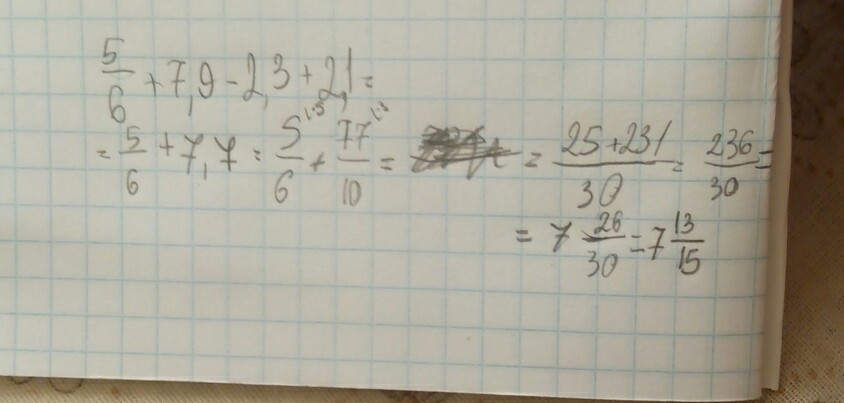 5/6 + 7,9 - 2,3 + 2,1 =
= 5/6 + 7,7 = 5/6 (·5 + 77/10 (·3 = = 25+231/30 = 236/30 =
= 7 26/30 = 7 13/15